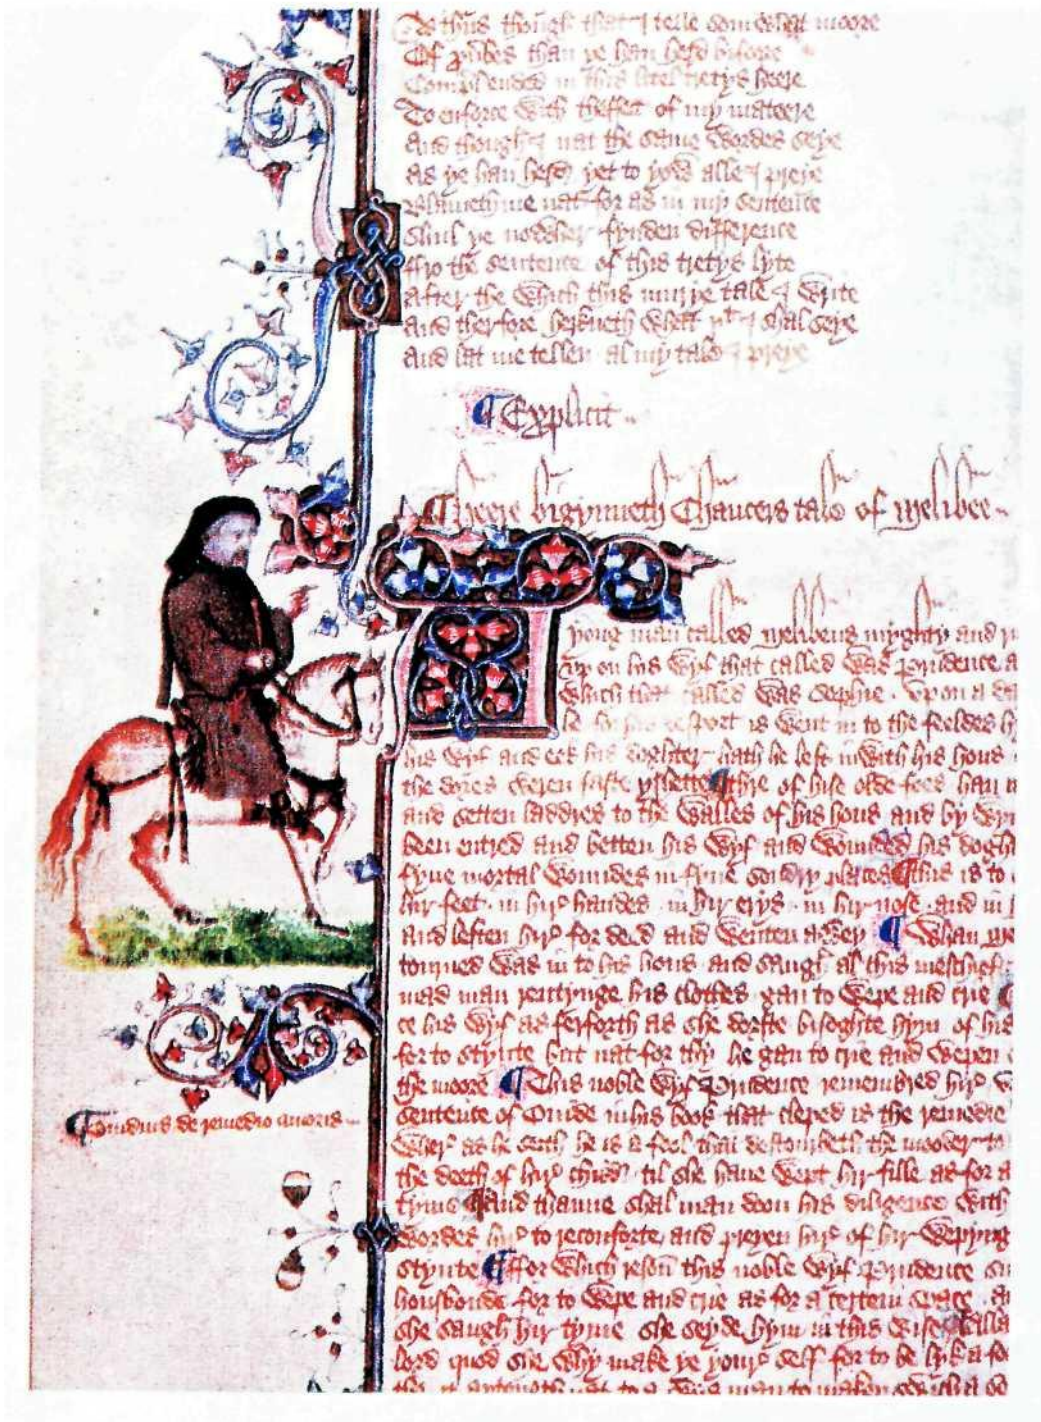 As thus though that I telle somwhat moore
Of prouerbes than ye han herd bifore
Comprehended in this litel tretys heere
To enforce with theffect of my mateere
And though I nat the same wordes seye
As ye han herd yet to yow alle I preye
Blameth me nat for as in my sentence
Shul ye nowher fynden difference
ffro the sentence of this tretys lyte
After the which this murye tale I write
And therfore herkneth what yt I shal seye
And lat me tellen al my tale I preye
¶ Explicit
¶ Heere bigynneth Chaucers tale of Melibee
A yong man called Melibeus myghty and r
vp on his wyf that called was Prudence a
which that called was Sophie . Vpon a da
he for his desport is went in to the feeldes h
his wyf and eek his doghter hath he left inwith his hous
the dores weren faste yshette ¶ thre of hise olde foes han
and setten laddres to the walles of his hous and by wyn
been entred and betten his wyf and wounded his dogh
fyue mortal woundes in fyue sondry places ¶ This is to
hir feet . in hir handes . in hir erys . in hir nose . and in
and leften hir for deed and wenten awey ¶ Whan Me
tourned was in to his hous and saugh al this meschief
mad man rentynge his clothes gan to wepe and crie ¶
ce his wyf as ferforth as she dorste bisoghte hym of his
for to stynte but nat for thy he gan to crie and wepen
the moore ¶ This noble wyf Prudence remembred hir
sentence of Ouide in his book that cleped is the remedie
wher as he seith he is a fool that destourbeth the mooder to
the deeth of hir child til she haue wept hir fille as for a
tyme ¶ And thanne shal man doon his diligence with
wordes hir to reconforte and preyen hir of hir wepyng
stynte ¶ ffor which reson this noble wyf Prudence su
housbonde for to wepe and crie as for a certein space . a
she saugh hir tyme she seyde hym in this wise ¶ Alla
lord quod she why make ye youre self for to be lyk a fo
¶ Ouidius de remedio amoris